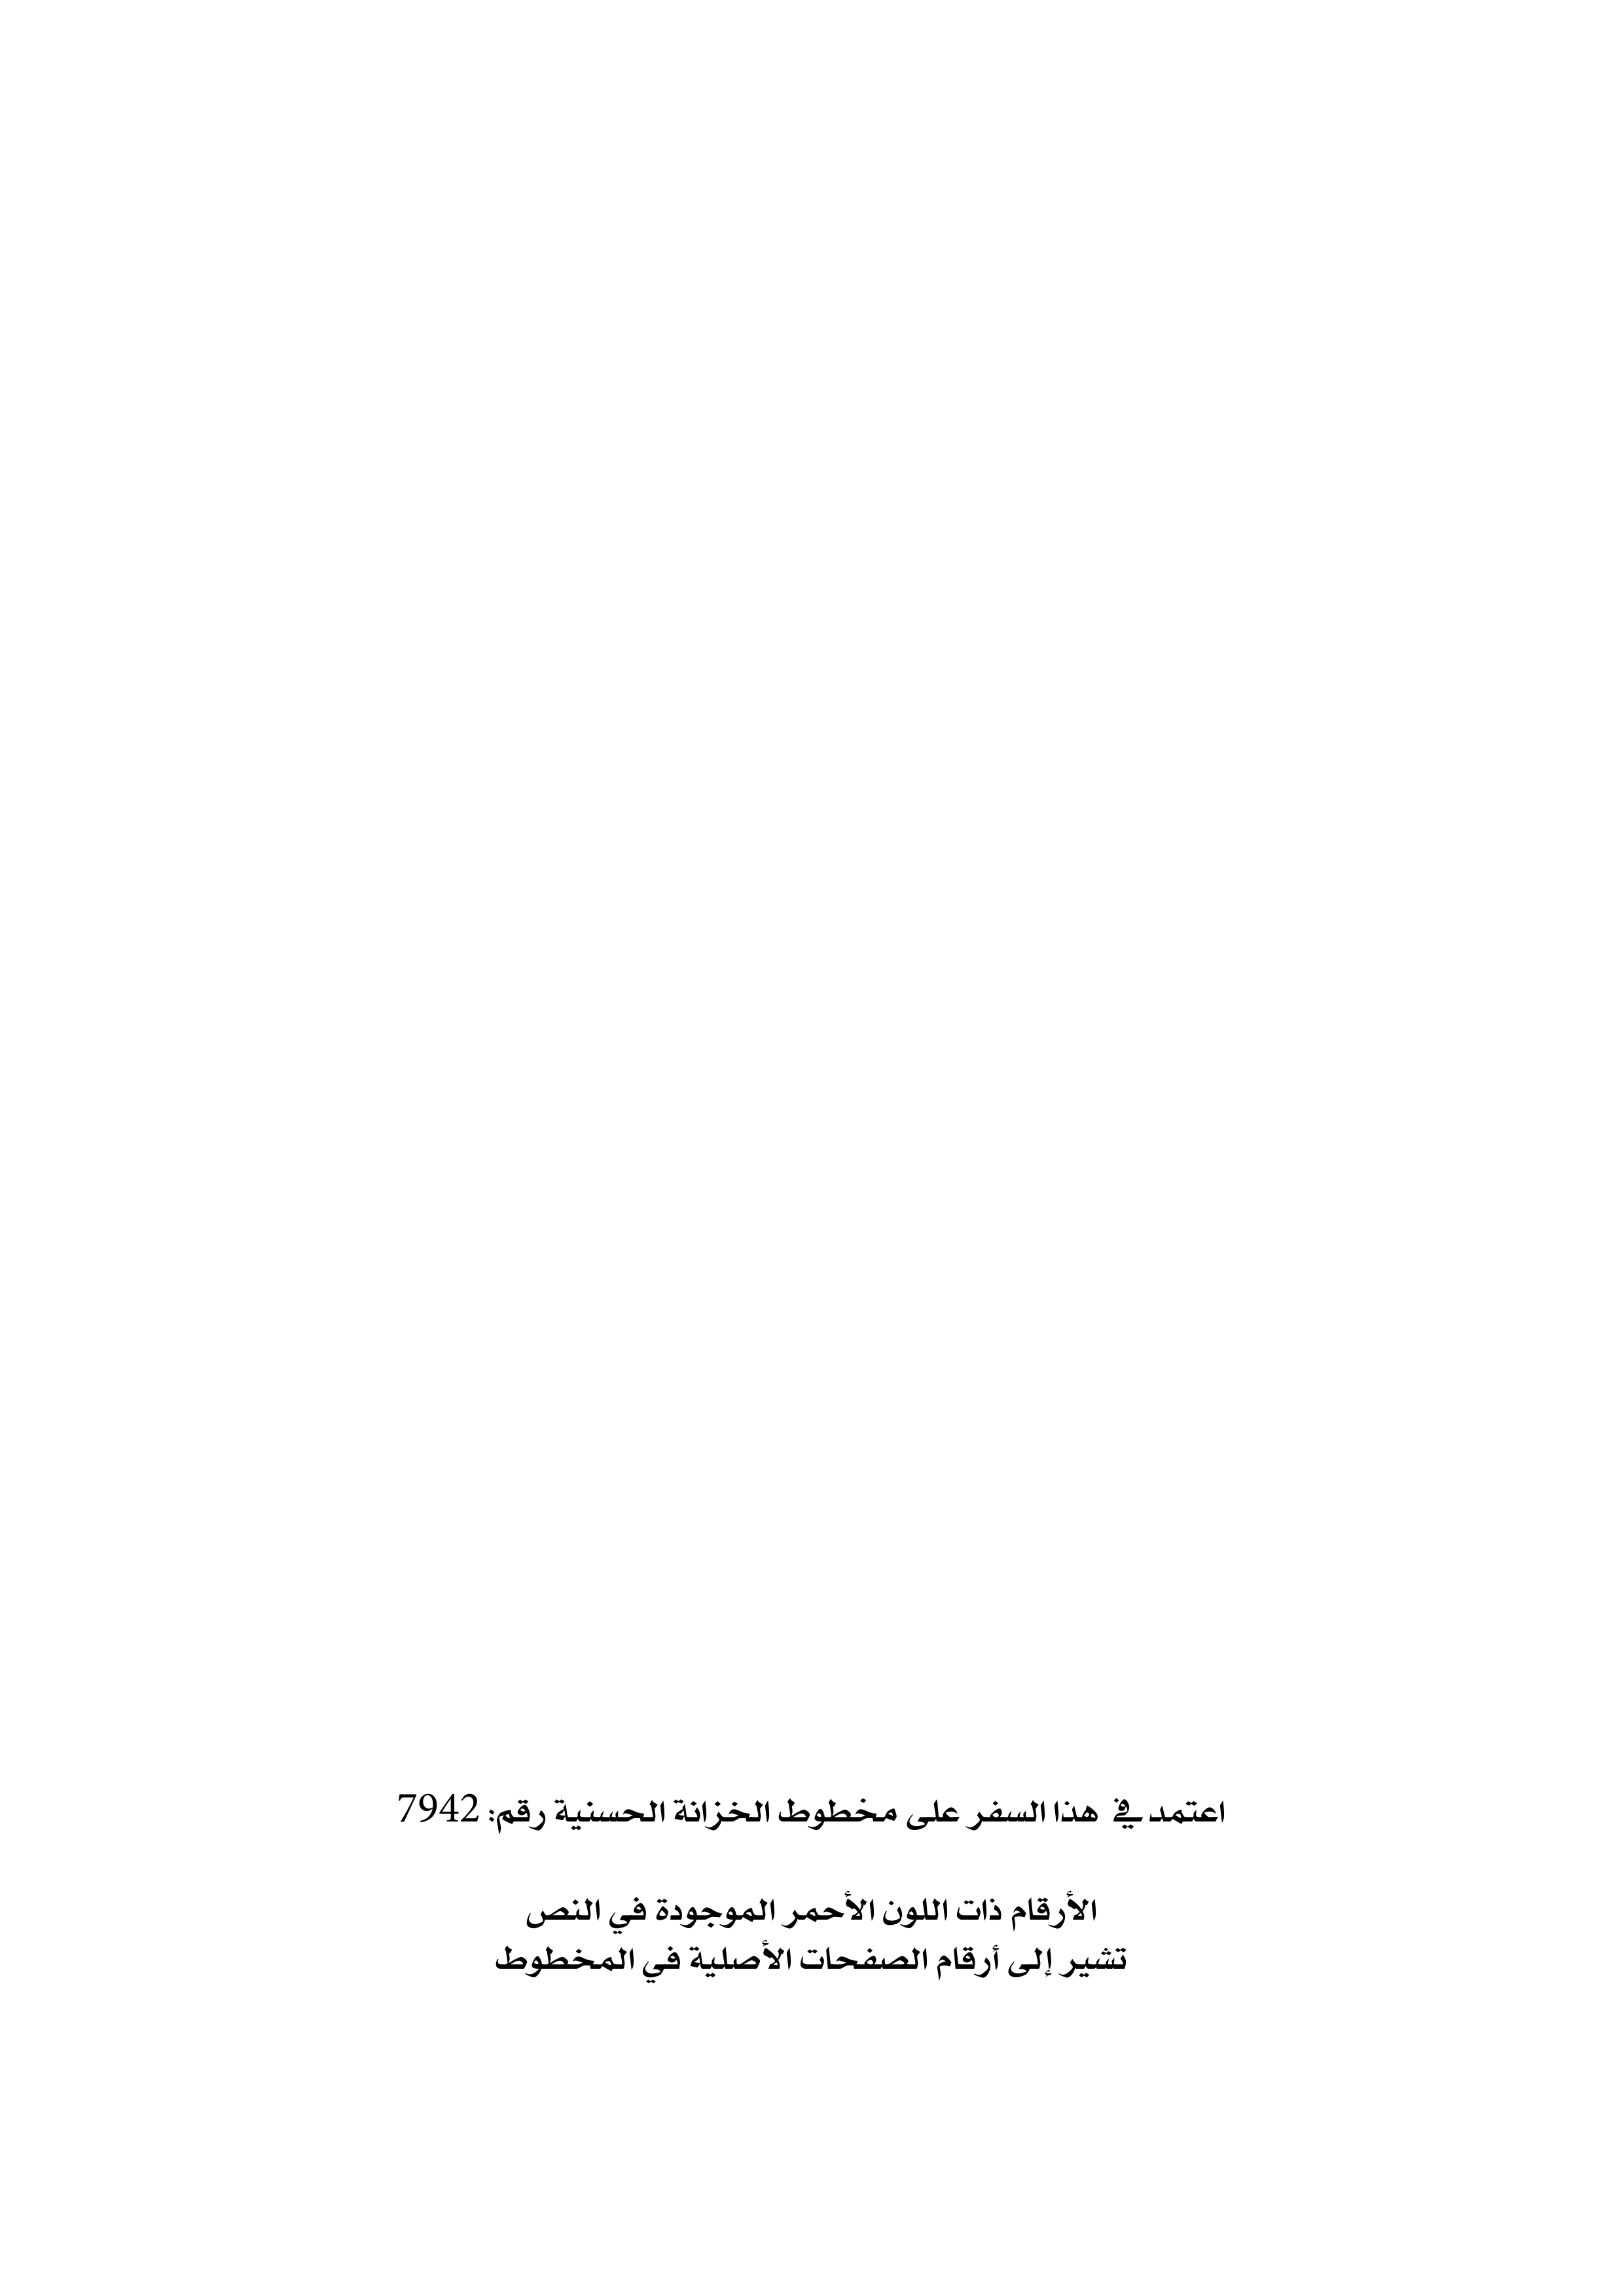 اعتمد في هذا السفر على مخطوط الخزانة الحسنية رقم: 7942
الأرقام ذات اللون الأحمر الموجودة في النص
تشير إلى أرقام الصفحات الأصلية في المخطوط